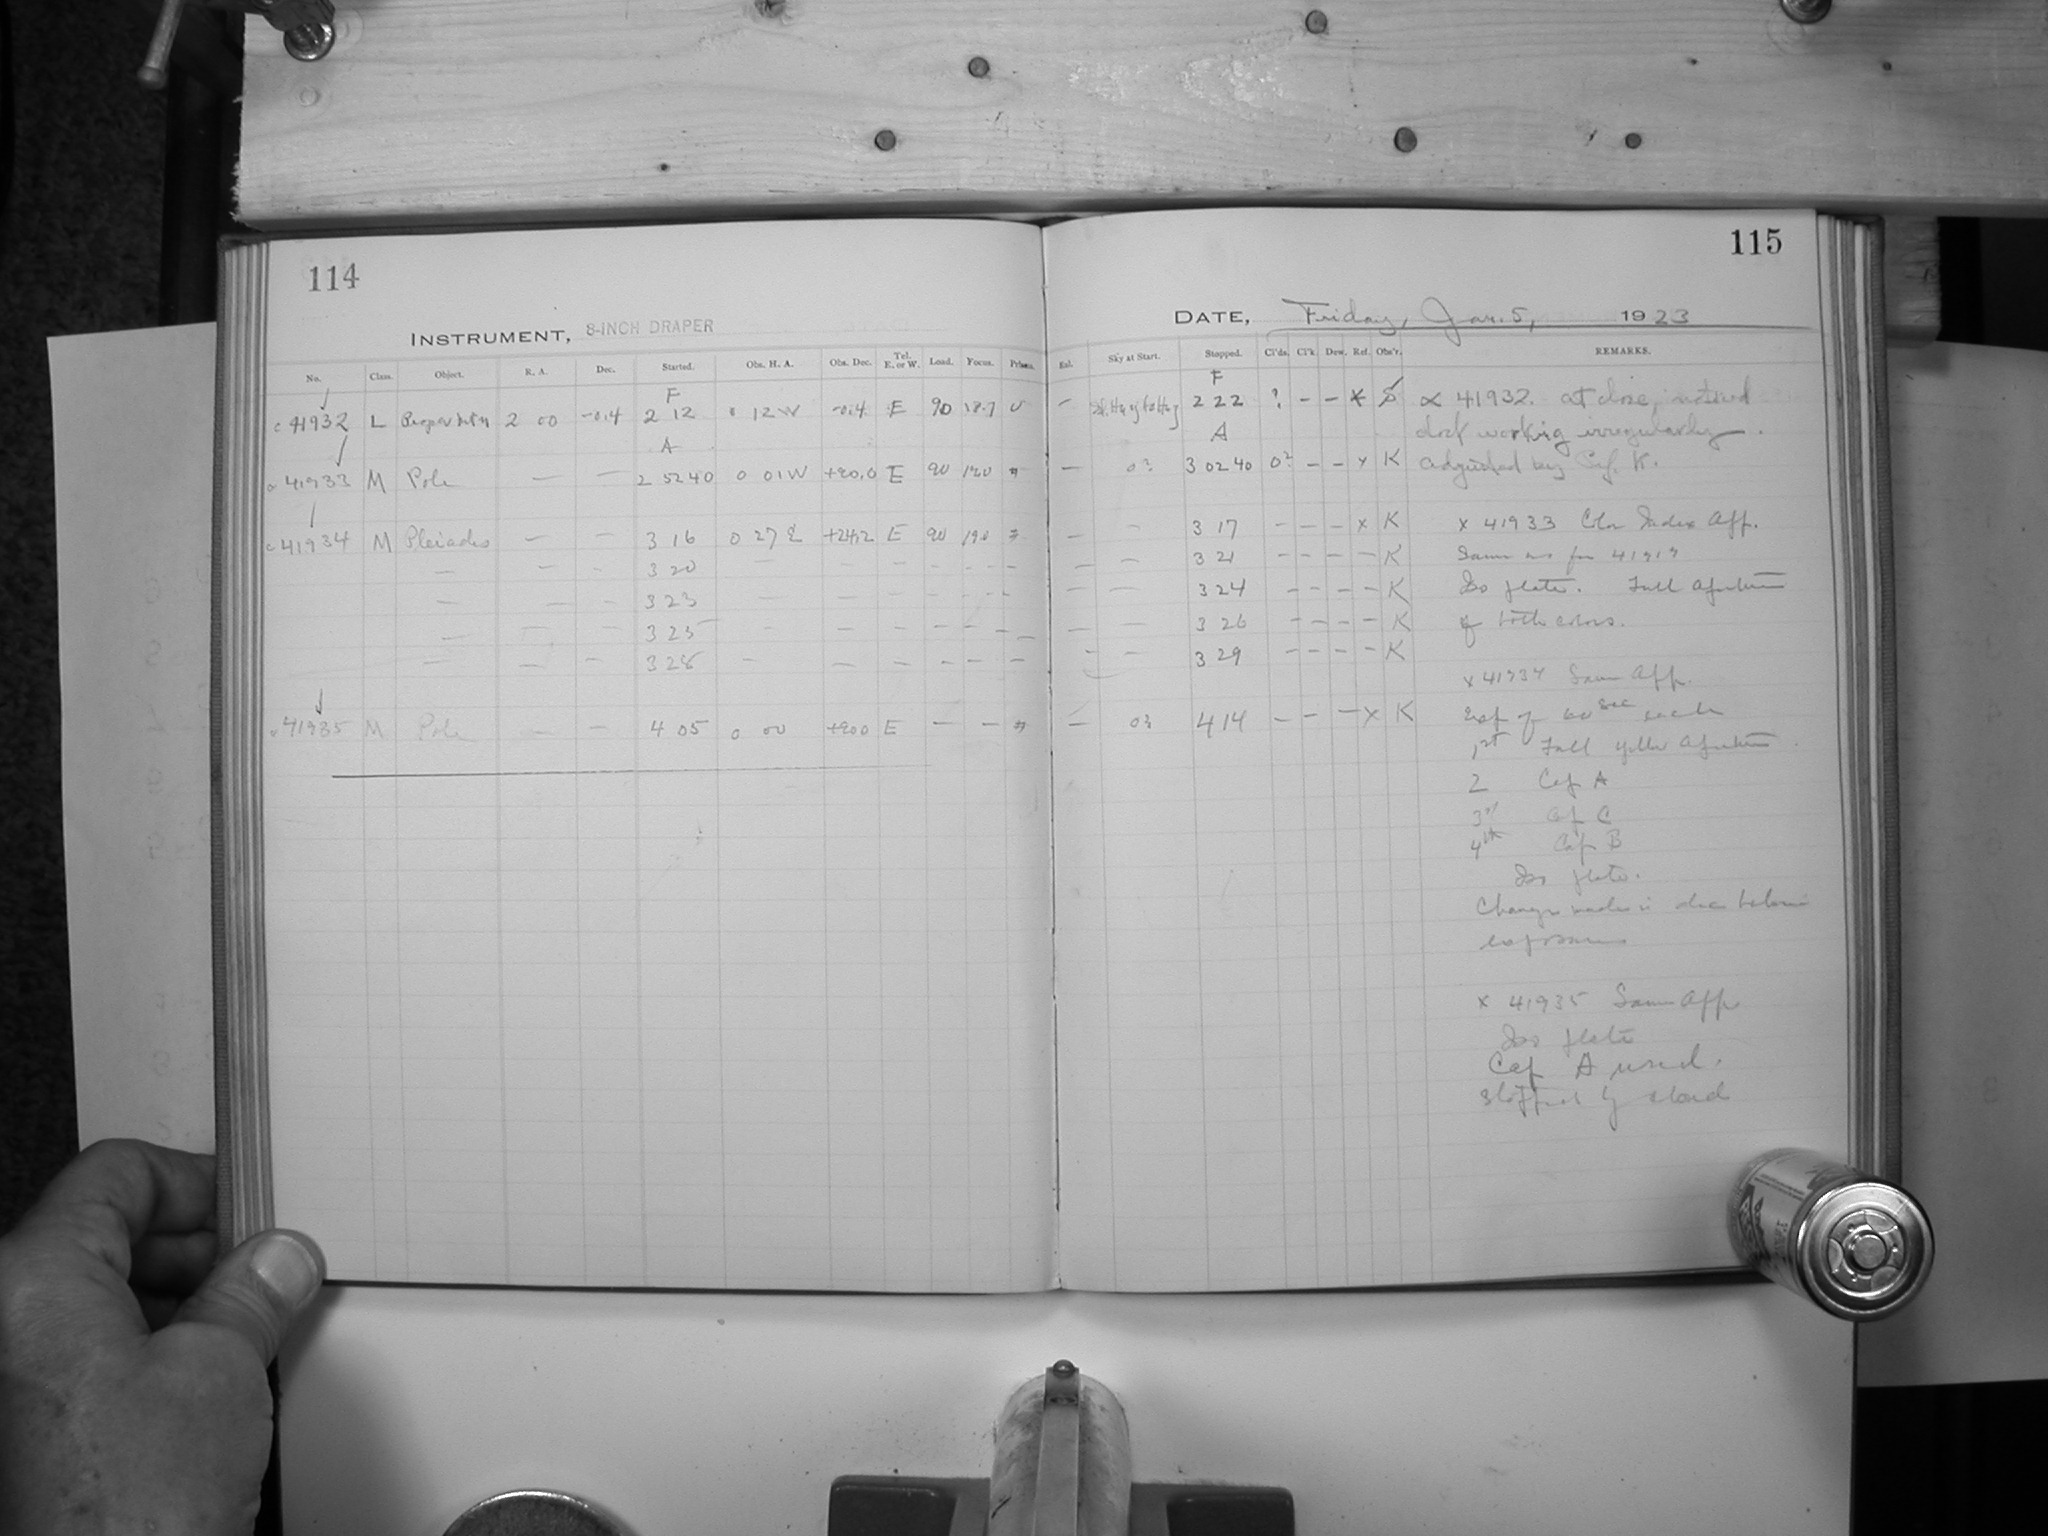 114
INSTRUMENT, 8-INCH DRAPER
No. Class. Object. R. A. Dec. Started. Obs. H. A. Obs. Dec. Tel. E. or W. Load. Focus. Prism.
F
c 41932 L 2 00 -0.4 2 12 0 12 W -0.4 E 90
A
c 41933 M Pole — — 2 52 40 0 01 W +90.0 E 90
c 41934 M Pleiades — — 3 16 0 27 E +24.2 E 90
— — — 3 20 — — — — — —
— — — 3 23 — — — — — —
— — — 3 25 — — — — — —
— — — 3 28 — — — — — —
c 41935 M Pole — — 4 05 0 00 +90.0 E — —
115
DATE, Friday, Jan. 5, 1923
Exl. Sky at Start. Stopped. Cl'ds. Cl'k. Dew. Ref. Obs'r. REMARKS.
F
— 2 22 ? — — x x 41932. at close, noticed
A
clock working irregularly.
— 0? 3 02 40 0? — — x K adjusted by K.
— — 3 17 — — — x K x 41933 Color Index App.
— — 3 21 — — — — K Same as for
— — 3 24 — — — — K Iso plate. Full Aperture
— — 3 26 — — — — K of both colors.
— — 3 29 — — — — K
x 41934 Same App.
— 0? 4 14 — — — x K Exp of 60 sec each
1st Full yellow Aperture
2 Cap A
3rd Cap C
4th Cap B
Iso plate.
Changes made in dec between
exposures
x 41935 Same App
Iso plate
Cap A used.
Stopped by cloud